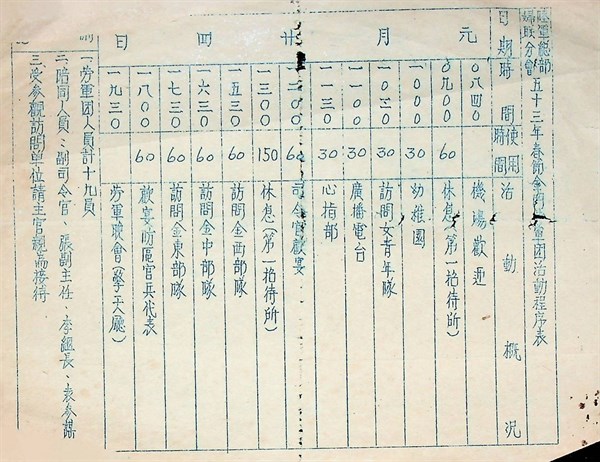 陸軍總部婦联分會
五十三年春節金軍团活動程序表
日期 時間 使用時間 活動概況
元月廿四日
0八四0 機場歡迎
0九00 60 休息(第一招待所)
一000 30 幼稚園
一0三0 30 訪問女青年隊
一一00 30 廣播電台
一一三0 30 心指部
一二00 60 司令官歡宴
一三00 150 休息(第一招待所)
一五三0 60 訪問金西部隊
一六三0 60 訪問金中部隊
一七三0 60 訪問金東部隊
一八00 60 歡宴防區官兵代表
一九三0 勞軍晚會(擎天廳)
一、勞軍团人員計十九員
二、陪同人員:副司令官、張副主任、李組長、袁參謀
三、受參觀訪問單位請主官親為接待